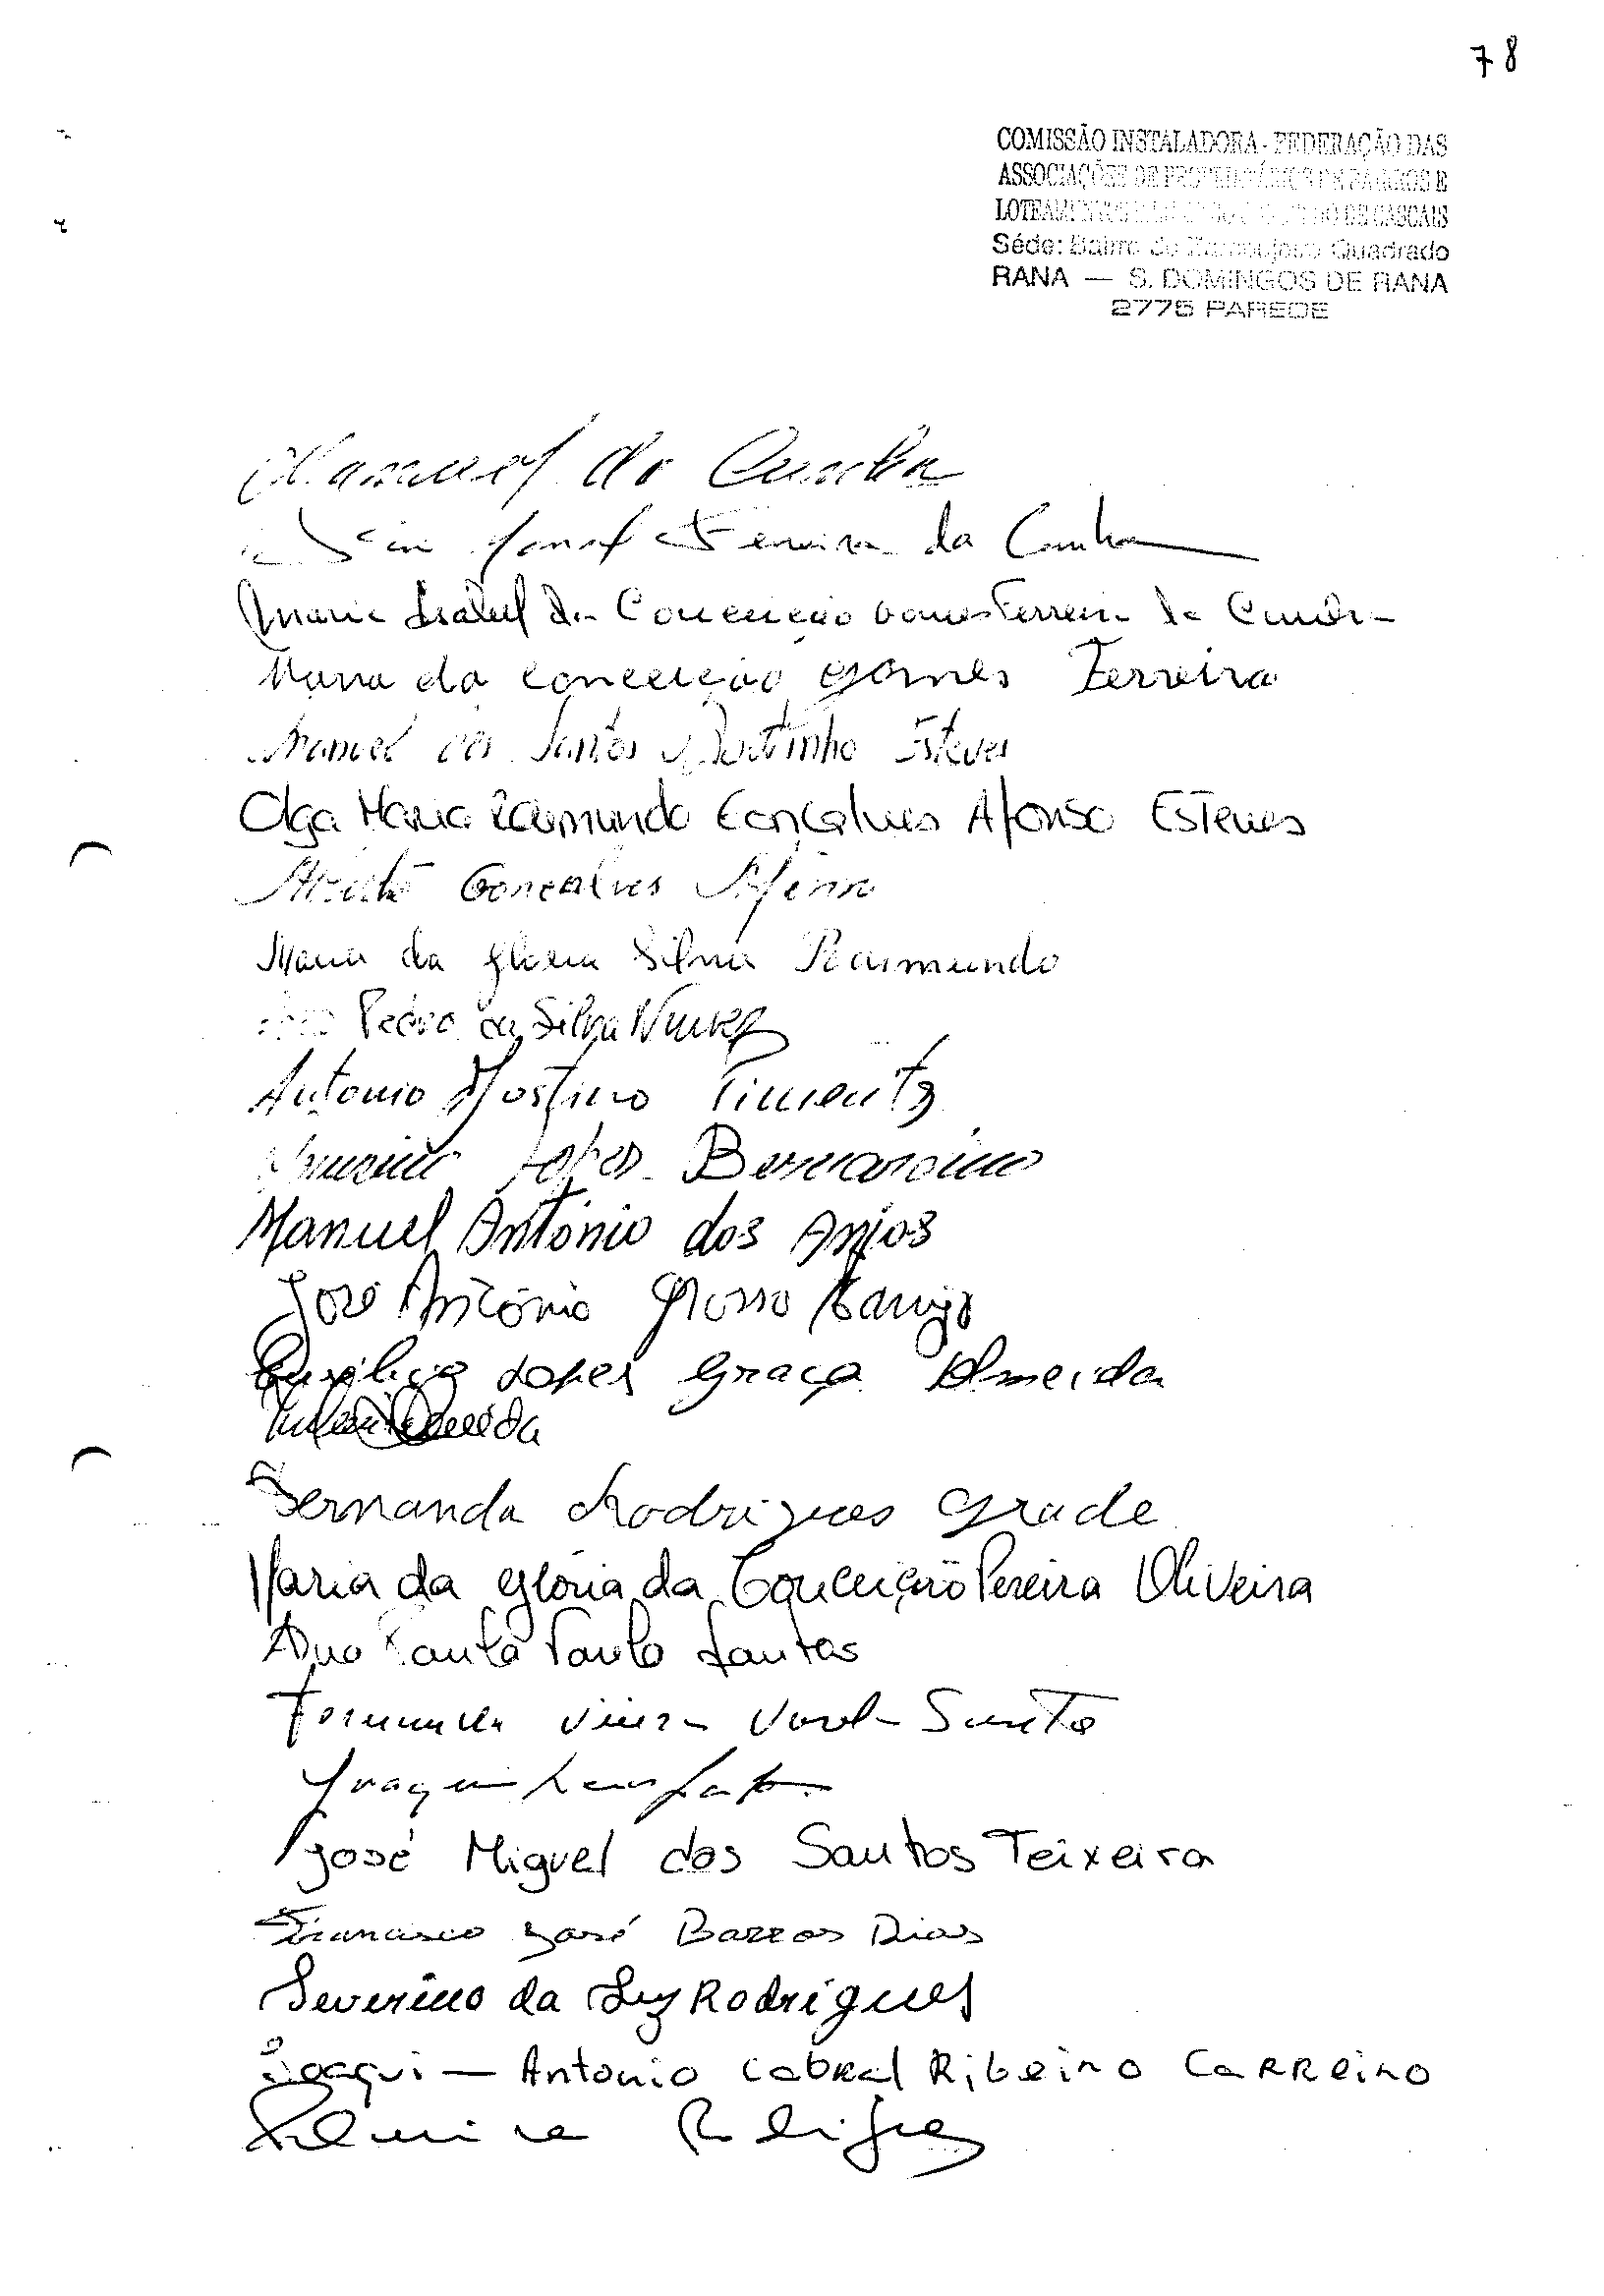 78
COMISSÃO INSTALADORA - FEDERAÇÃO DAS
ASSOCIAÇÕES DE PROPRIETÁRIOS DE BAIRROS E
LOTEAMENTOS DE CASCAIS
Séde: Bairro do Quadrado
RANA — S. DOMINGOS DE RANA
2775 PAREDE
Manuel da Cunha
Ferreira da Cunha
Maria Isabel da Conceição Gomes Ferreira da Cunha
Maria da Conceição Gomes Ferreira
Manuel dos Santos Martinho Esteves
Olga Maria Raimundo Gonçalves Afonso Esteves
Gonçalves Afonso
Maria da Gloria Silva Raimundo
Pedro da Silva Nunes
Antonio Pimenta
Lopes Bernardino
Manuel António dos Anjos
José António Grosso
Lopes Graça Almeida
Almeida
Fernanda Rodrigues Grade
Maria da Glória da Conceição Pereira Oliveira
Ana Paula Paulo Santos
Vieira Santo
Joaquim
José Miguel dos Santos Teixeira
Francisco José Barros Dias
Severino da Luz Rodrigues
Joaqui— Antonio Cabral Ribeiro Carreiro
Palmira Rodrigues